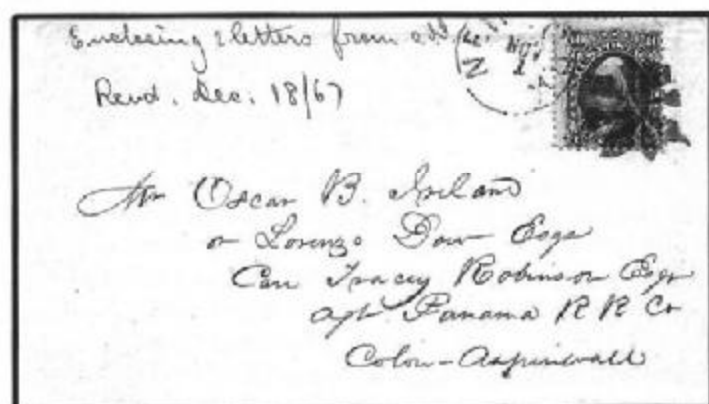 Enclosing 2 letters from
Recd. Dec. 18/67
Mr Oscar B. Ireland
or Lorenzo Dow Esqs
Care Tracey Robinson Esqr
Agt. Panama R R Co
Colon-Aspinwall